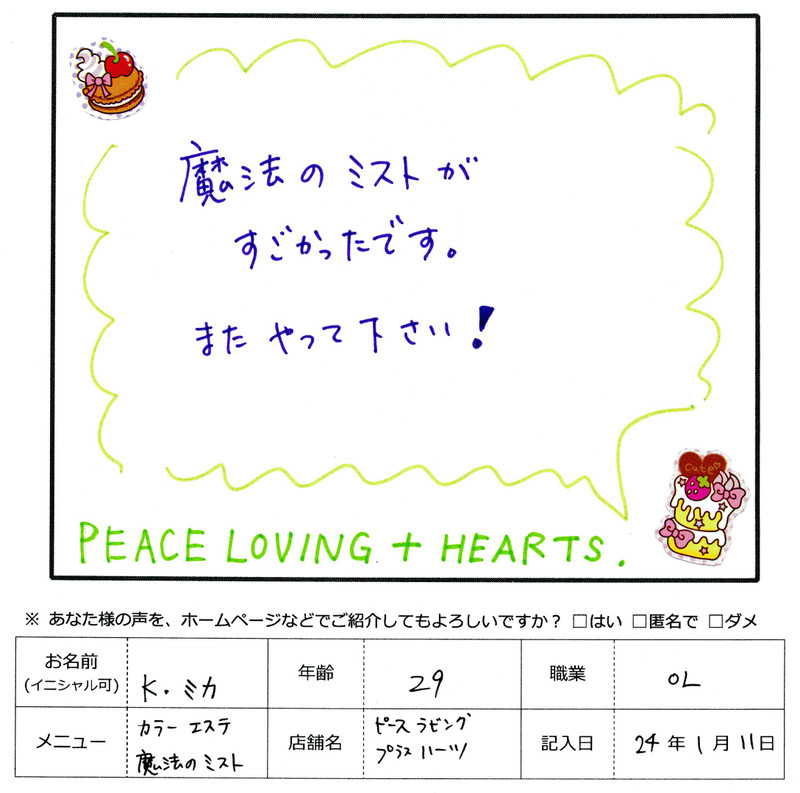 魔法のミストが
すごかったです。
また やって下さい!
cute
PEACE LOVING + HEARTS.
※ あなた様の声を、ホームページなどでご紹介してもよろしいですか? □はい □匿名で □ダメ
お名前
(イニシャル可)
K・ミカ
年齢
29
職業
OL
メニュー
カラー エステ
魔法のミスト
店舗名
ピース ラビング
プラス ハーツ
記入日
24年1月11日